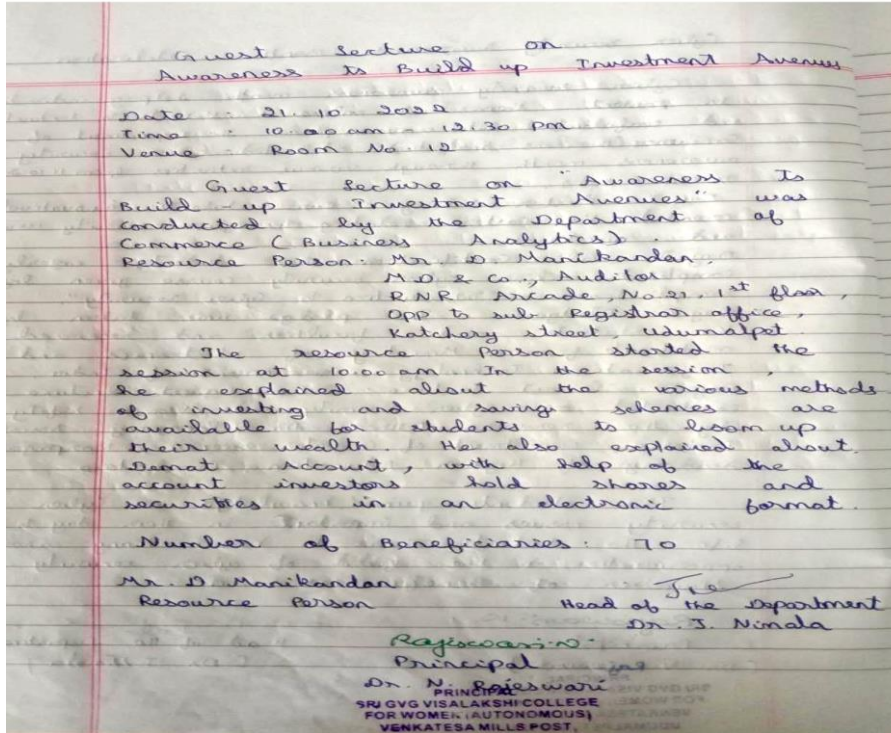 Guest Lecture on
Awareness to Build up Investment Avenues
Date : 21.10.2022
Time : 10.00 am - 12.30 pm
Venue : Room No. 12
Guest Lecture on "Awareness To
Build - up Investment Avenues" was
conducted by the Department of
Commerce (Business Analytics).
Resource Person: Mr. D. Manikandan,
M.D & Co., Auditor
RNR Arcade, No 21, 1st floor,
Opp to sub Registrar office,
Katchery street, Udumalpet.
The resource Person started the
session at 10.00 am In the session,
he explained about the various methods
of investing and saving schemes are
available for students to boom up
their wealth. He also explained about
Demat Account, with help of the
account investors hold shares and
securities in an electronic format.
Number of Beneficiaries: 70
Mr. D. Manikandan
Resource Person Head of the Department
Dr. J. Nimala
Rajeswari.N.
Principal
Dr. N. Rajeswari
PRINCIPAL
SRI GVG VISALAKSHI COLLEGE
FOR WOMEN (AUTONOMOUS)
VENKATESA MILLS POST,